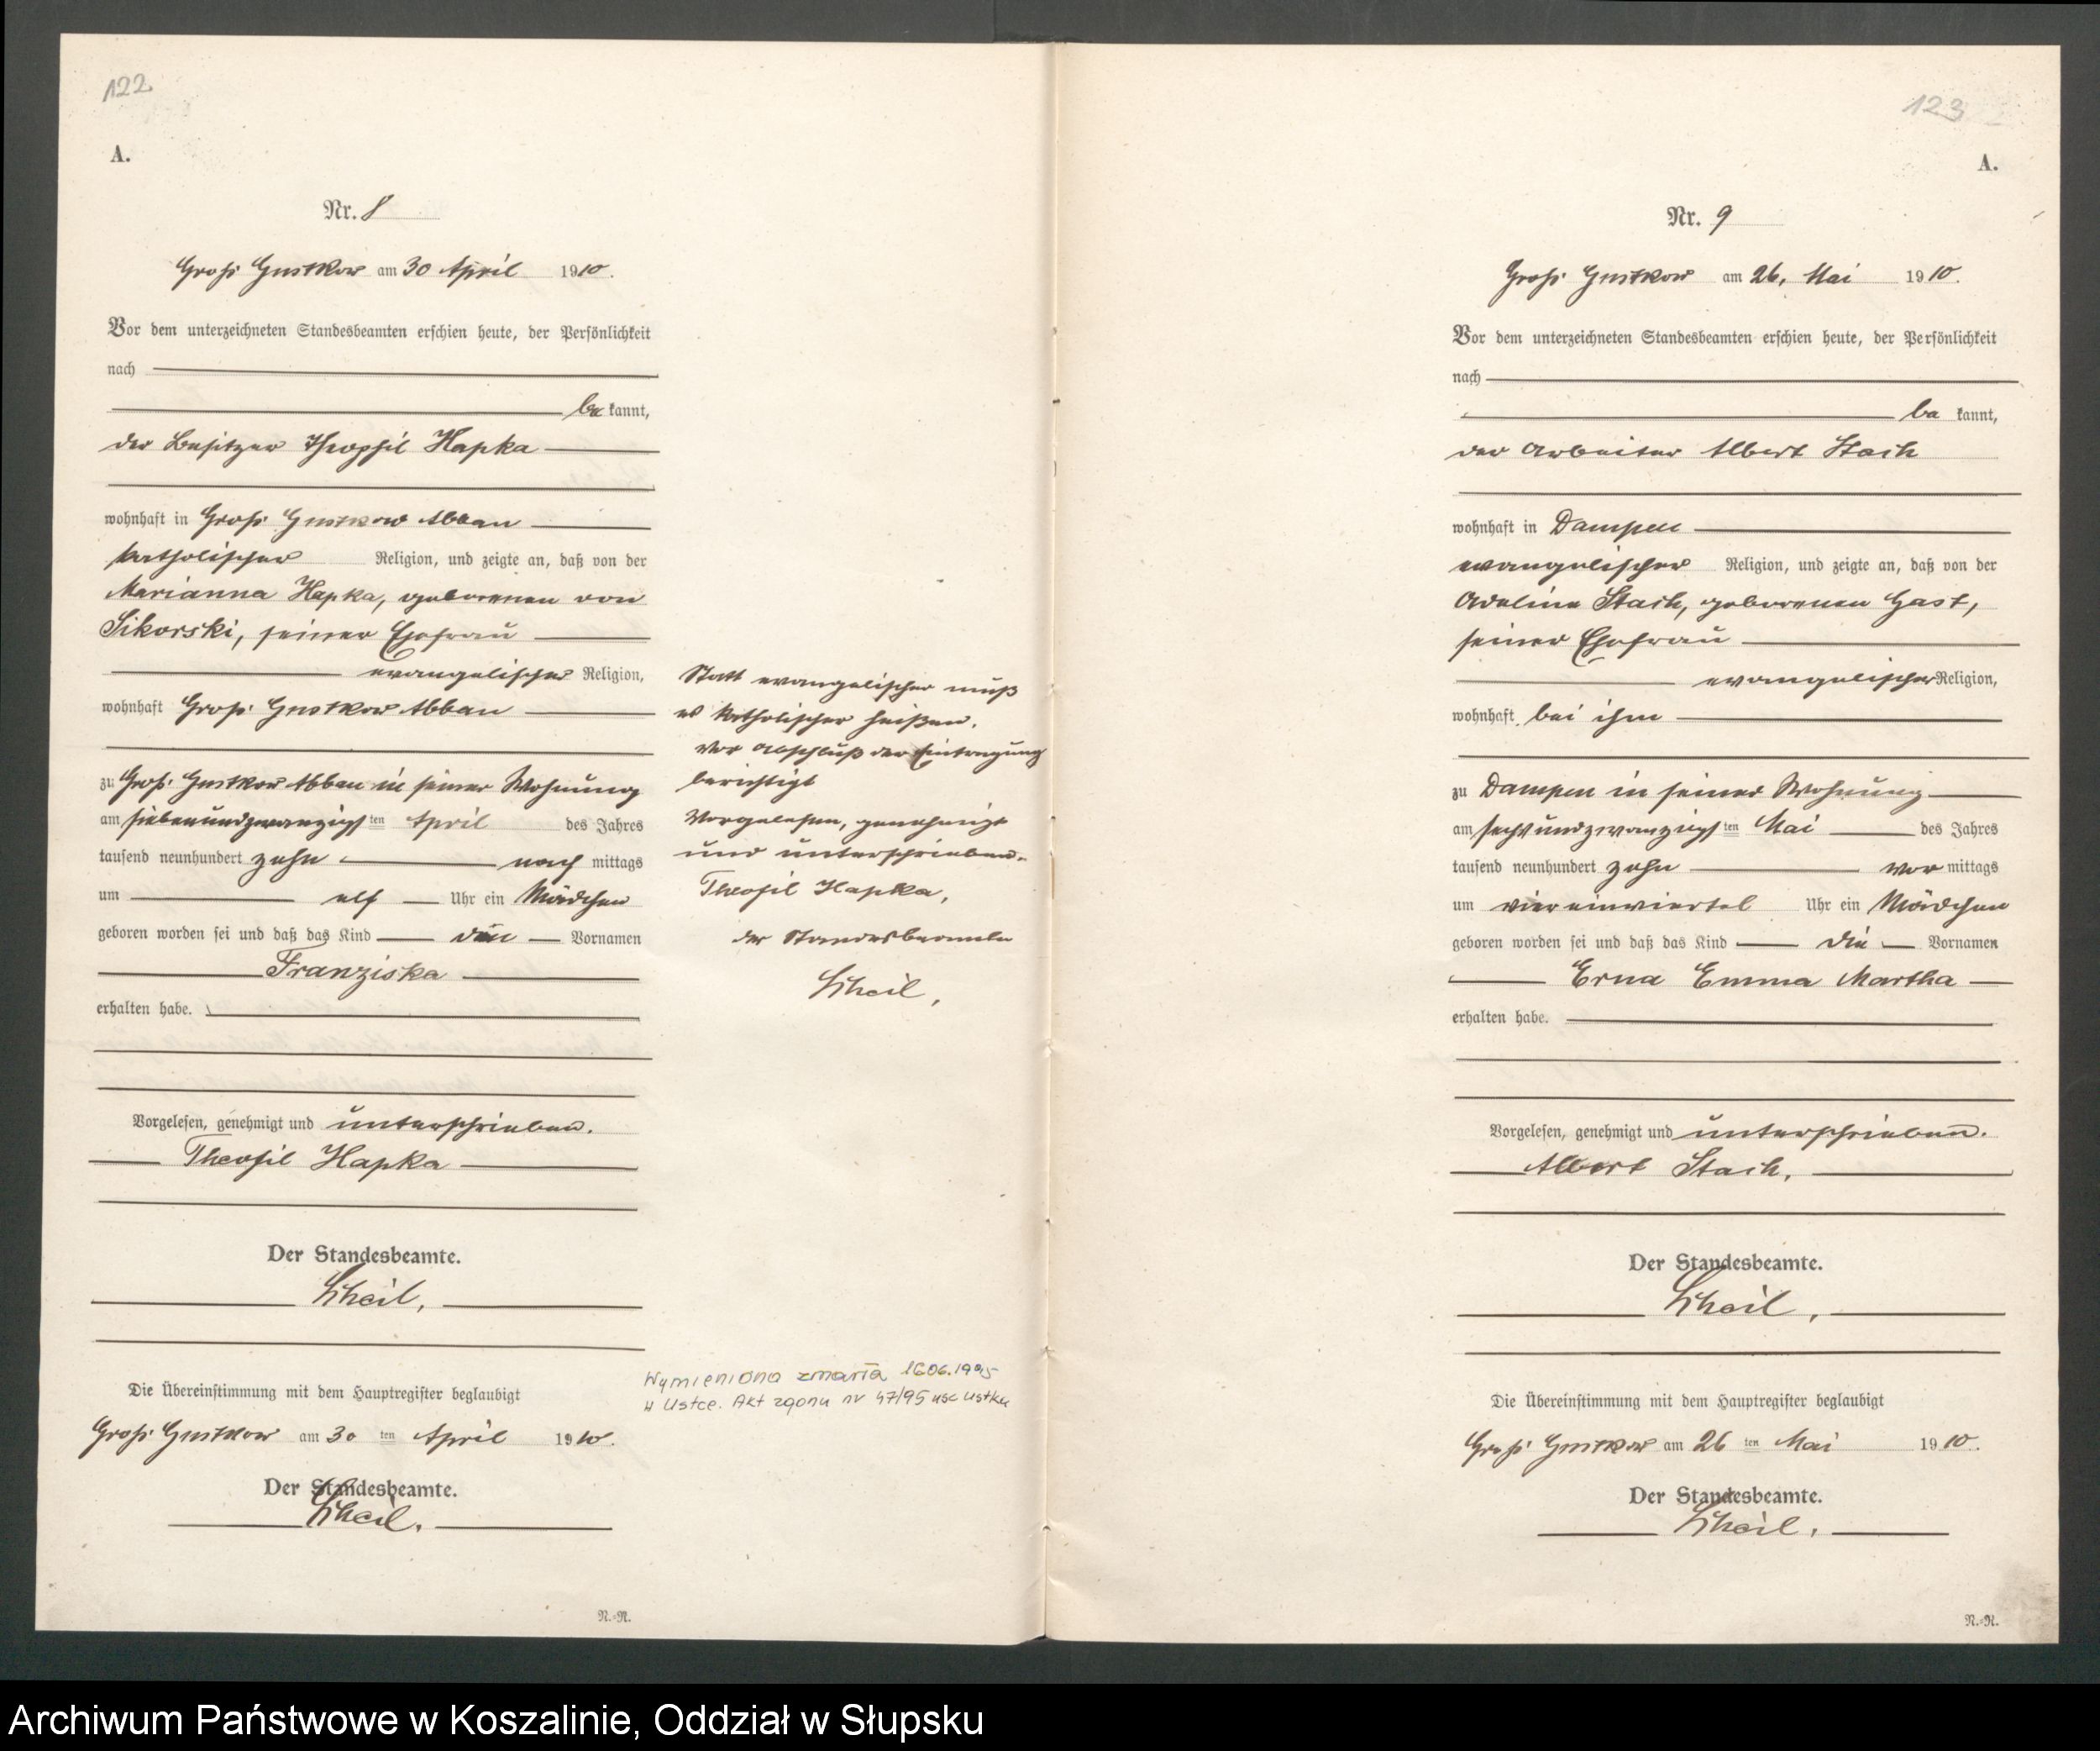 122
A.
Nr. 8
Groß Gustkow am 30 April 1910.
Vor dem unterzeichneten Standesbeamten erschien heute, der Persönlichkeit
nach
be kannt,
der Besitzer Theophil Hapka
wohnhaft in Groß Gustkow Abbau
katholischer Religion, und zeigte an, daß von der
Marianna Hapka, geborenen von
Sikorski, seiner Ehefrau
evangelischer Religion,
wohnhaft Groß Gustkow Abbau
zu Groß Gustkow Abbau in seiner Wohnung
am siebenundzwanzigsten April des Jahres
tausend neunhundert zehn nach mittags
um elf Uhr ein Mädchen
geboren worden sei und daß das Kind den Vornamen
Franziska
erhalten habe.
Vorgelesen, genehmigt und unterschrieben.
Theofil Hapka
Der Standesbeamte.
Scheil,
Die Übereinstimmung mit dem Hauptregister beglaubigt
Groß Gustkow am 30 ten April 1910.
Der Standesbeamte.
Scheil.
N.-N.
Statt evangelischer muß
es katholischer heißen.
Vor Abschluß der Eintragung
berichtigt
Vorgelesen, genehmigt
und unterschrieben.
Theofil Hapka,
der Standesbeamte
Scheil,
Wymieniona zmarła 16.06.1995
w Ustce. Akt zgonu nr 47/95 usc Ustka
123
A.
Nr. 9
Groß Gustkow am 26. Mai 1910.
Vor dem unterzeichneten Standesbeamten erschien heute, der Persönlichkeit
nach
be kannt,
der Arbeiter Albert Stach
wohnhaft in Dampen
evangelischer Religion, und zeigte an, daß von der
Adeline Stach, geborenen Gast,
seiner Ehefrau
evangelischer Religion,
wohnhaft bei ihm
zu Dampen in seiner Wohnung
am sechsundzwanzigsten Mai des Jahres
tausend neunhundert zehn vor mittags
um viereinviertel Uhr ein Mädchen
geboren worden sei und daß das Kind die Vornamen
Erna Emma Martha
erhalten habe.
Vorgelesen, genehmigt und unterschrieben.
Albert Stach.
Der Standesbeamte.
Scheil,
Die Übereinstimmung mit dem Hauptregister beglaubigt
Groß Gustkow am 26 ten Mai 1910.
Der Standesbeamte.
Scheil.
N.-N.
Archiwum Państwowe w Koszalinie, Oddział w Słupsku